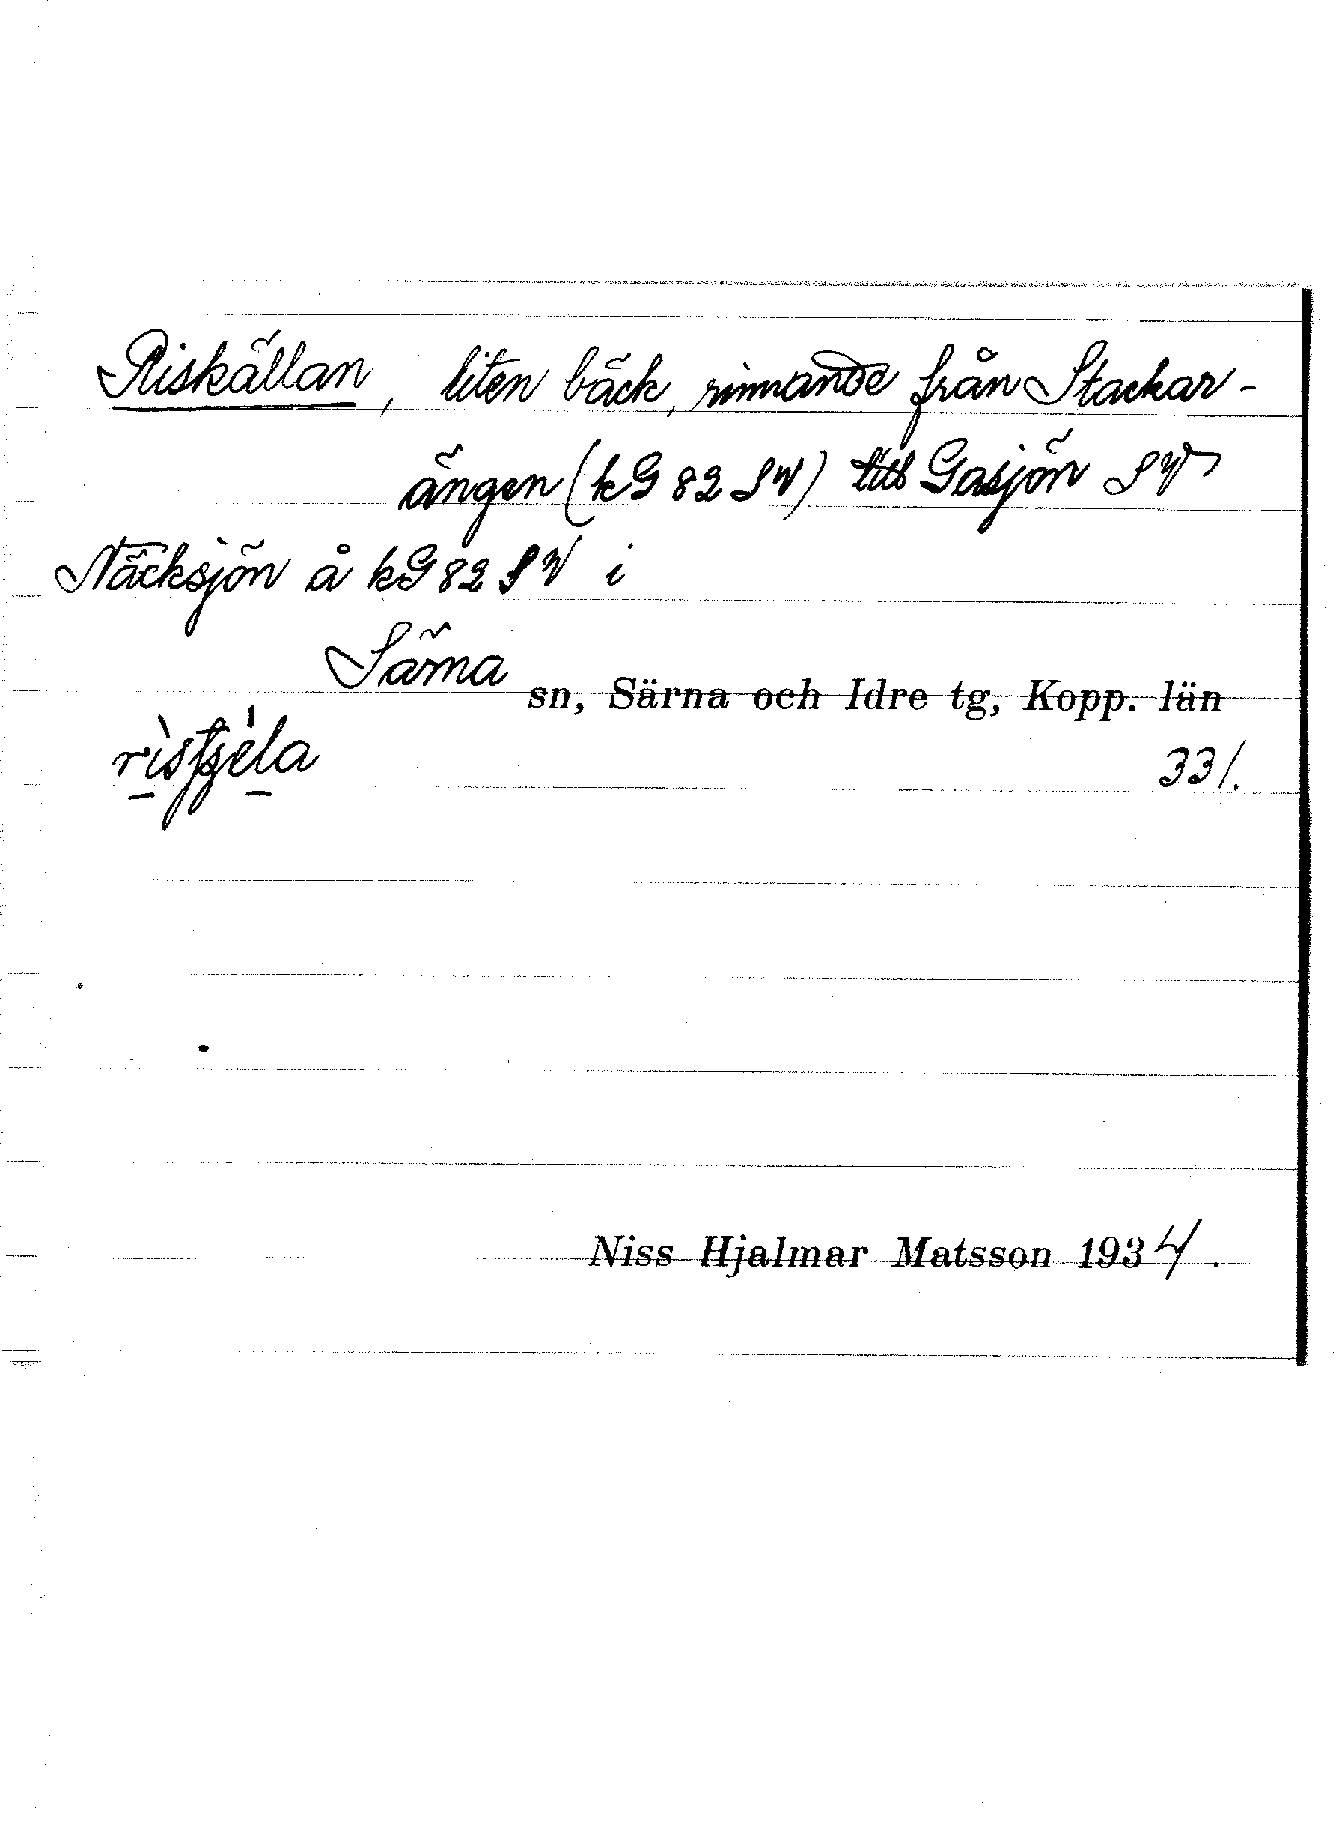 Riskällan, liten bäck, rinnande från Stackar-
ängen (kG 82 SV) till Gasjön SV
Näcksjön å kG 82 SV i
Särna sn, Särna och Idre tg, Kopp. län
331.
Niss Hjalmar Matsson 1934.